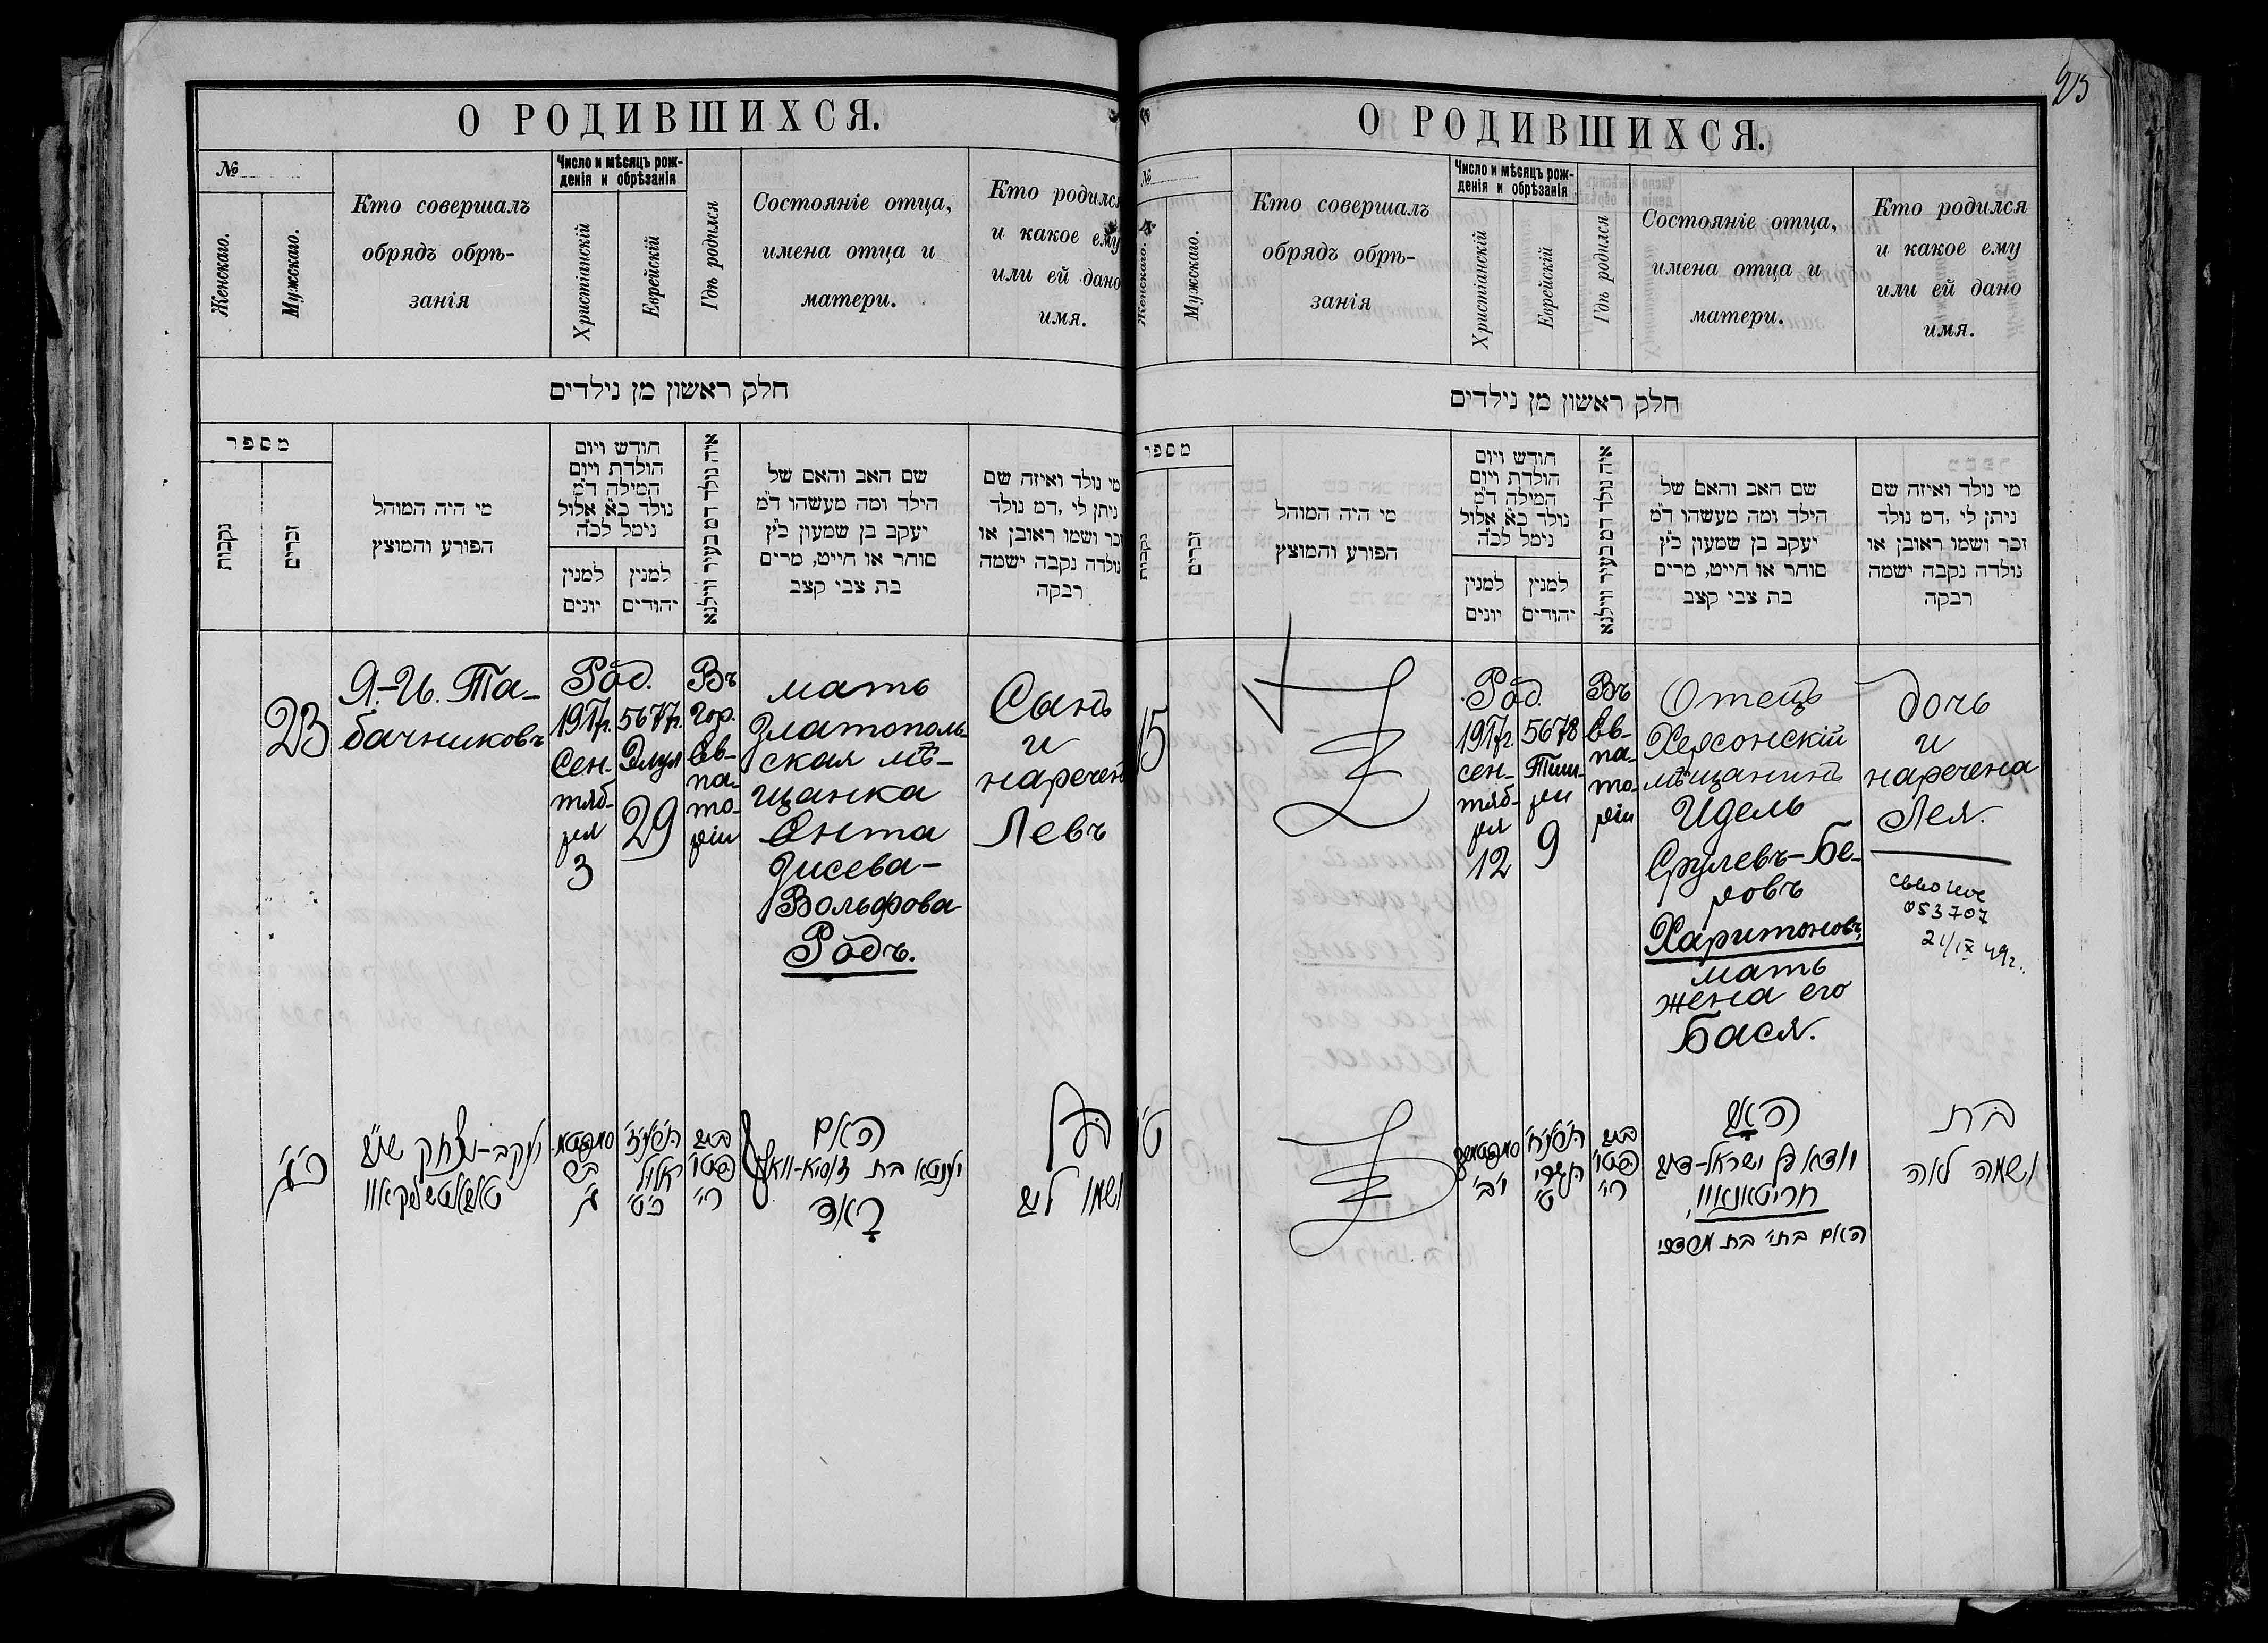 О РОДИВШИХСЯ.
№
Женскаго.
Мужскаго.
Кто совершалъ
обрядъ обрѣ-
занія
Число и мѣсяцъ рож-
денія и обрѣзанія
Христіанскій
Еврейскій
Гдѣ родился
Состояніе отца,
имена отца и
матери.
Кто родился
и какое ему
или ей дано
имя.
חלק ראשון מן נילדים
מספר
נקבות
זכרים
מי היה המוהל
הפורע והמוצץ
חודש ויום
הולדת ויום
המילה ד״מ
נולד כ״א אלול
נימל לכ״ה
למנין
יונים
למנין
יהודים
איה נולד דמ בעיר ווילנא
שם האב והאם של
הילד ומה מעשהו ד״מ
יעקב בן שמעון כ״ץ
סוחר או חייט, מרים
בת צבי קצב
מי נולד ואיזה שם
ניתן לי ,דמ נולד
זכר ושמו ראובן או
נולדה נקבה ישמה
רבקה
23
Я.-И. Та-
бачниковъ
Род.
1917г.
Сен-
тяб-
ря
3
5677г.
Элул
29
Въ
гор.
Ев-
па-
то-
ріи
мать
Златополь-
ская мѣ-
щанка
Ента
Зисева-
Вольфова
Родъ.
Сынъ
и
наречен
Левъ
כ״ג
יעקב-יצחק שו״ב
ב״ש
ג׳
אלול
כ״ט
האם
יענטא בת זוסיא-וואלף
ראד
בן
ושמו ליב
О РОДИВШИХСЯ.
25
№
Женскаго.
Мужскаго.
Кто совершалъ
обрядъ обрѣ-
занія
Число и мѣсяцъ рож-
денія и обрѣзанія
Христіанскій
Еврейскій
Гдѣ родился
Состояніе отца,
имена отца и
матери.
Кто родился
и какое ему
или ей дано
имя.
חלק ראשון מן נילדים
מספר
נקבות
זכרים
מי היה המוהל
הפורע והמוצץ
חודש ויום
הולדת ויום
המילה ד״מ
נולד כ״א אלול
נימל לכ״ה
למנין
יונים
למנין
יהודים
איה נולד דמ בעיר ווילנא
שם האב והאם של
הילד ומה מעשהו ד״מ
יעקב בן שמעון כ״ץ
סוחר או חייט, מרים
בת צבי קצב
מי נולד ואיזה שם
ניתן לי ,דמ נולד
זכר ושמו ראובן או
נולדה נקבה ישמה
רבקה
15
Род.
1917г.
сен-
тяб-
ря
12
5678
Тиш-
ри
9
Въ
Ев-
па-
то-
ріи
Отецъ
Херсонскій
мѣщанинъ
Идель
Срулевъ-Бе-
ровъ
Харитоновъ,
мать
жена его
Бася.
дочь
и
наречена
Лея.
053707
21/IX 49г.
ט״ו
י״ב
תשרי
ט׳
האב
יודא בן ישראל-דוב
חריטאנאוו,
האם בתי׳ בת מרדכי
בת
ושמה לאה